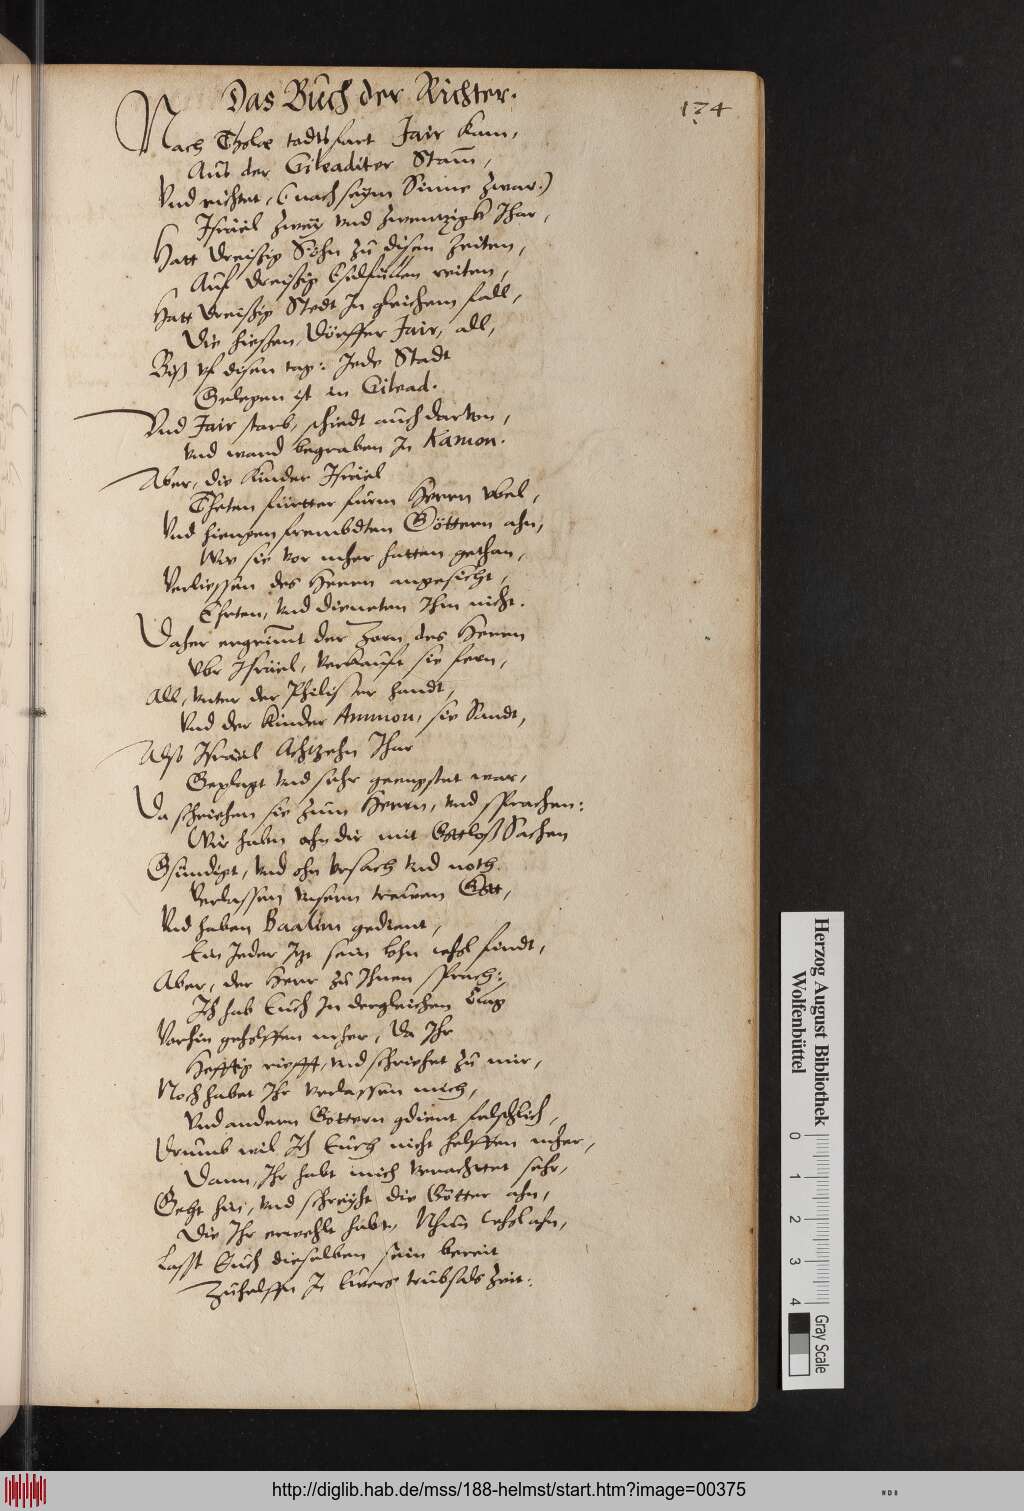 Das Buch der Richter.
174
Nach Thole todtsfart Jair kam,
Aus der Gileaditer Stam̄,
Vnd richtet, (nach seym Sinne zwar)
Israel zwey vnd zwentzigk Jhar,
Hatt dreissig Söhn zu disen zeiten,
Auf dreissig Eselfullen reiten,
Hatt dreissig Stedt In gleichem fall,
Die hiessen, Dörffer Jair, all,
Biss vf disen tag: Jede Stadt
Gelegen ist in Gilead.
Vnd Jair starb, schiedt auch darvon,
Vnd ward begraben In Kamon.
Aber, die Kinder Israel
Theten fürtter fürm Herrn vbel,
Vnd hiengen frembdten Göttern ahn,
Wie sie vor mher hatten gethan,
Verliessen des Herrn angesicht,
Ehrten, vnd dieneten Ihm nicht.
Daher ergrim̄t der Zorn des Herrn
Vbr Israel, verkauft sie fern,
All, vnter der Philister handt,
Vnd der Kinder Ammon, sie Sandt,
Alss Israel Achtzehn Jhar
Geplagt vnd sehr geengstet war,
Da schriehen sie zum Herrn, vnd sprachen:
Wir habn ahn dir mit Gottloss Sachen
Gsündigt, vnd ohn vrsach vnd noth
Verlassen vnsern trewen Gott,
Vnd haben Baalim gedient,
Ein Jeder Itzt sein lohn wohl findt,
Aber, der Herr zu Ihnen sprach:
Ich hab Euch In dergleichen Clag
Vorhin geholffen mher, Da Ihr
Hefftig riefft, vnd schriehet zu mir,
Noch habet Ihr verlassen mich,
Vnd andern Göttern gdient felschlich,
Drumb wil Ich Euch nicht helffen mher,
Dann, Ihr habt mich verachtet sehr,
Geht hin, vnd schreyht die Götter ahn,
Die Ihr erwehlt habt, Nhun wohl ahn,
Lasst Euch dieselben sein bereit
Zuhelffn In Ewers trübsals Zeit:
Herzog August Bibliothek
Wolfenbüttel
0 1 2 3 4
Gray Scale
http://diglib.hab.de/mss/188-helmst/start.htm?image=00375